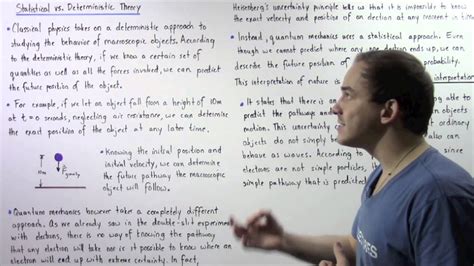 Statistical vs. Deterministic Theory
• Classical physics takes on a deterministic approach to
studying the behavior of macroscopic objects. According
to the deterministic theory, if we know a certain set of
quantities as well as all the forces involved, we can predict
the future position of the object.
• For example, if we let an object fall from a height of 10m
at t = 0 seconds, neglecting air resistance, we can determine
the exact position of the object at any later time.
10m
F gravity
• Knowing the initial position and
initial velocity, we can determine
the future pathway the macroscopic
object will follow.
• Quantum mechanics however take a completely different
approach. As we already saw in the double-slit experiment
with electrons, there is no way of knowing the pathway
that any electron will take nor is it possible to know where an
electron will end up with extreme certainty. In fact,
Heisenberg's uncertainty principle tells us that it is impossible to know
the exact velocity and position of an electron at any moment in
• Instead, quantum mechanics uses a statistical approach. Even
though we cannot predict where any one electron ends up, we can
describe the future position of probability.
This interpretation of nature is interpretation
• It states that there is an
predict the pathways
motion. This uncertainty
objects do not simply ordinary
behave as waves. According to
electrons are not simple particles,
simple pathway that is predicted